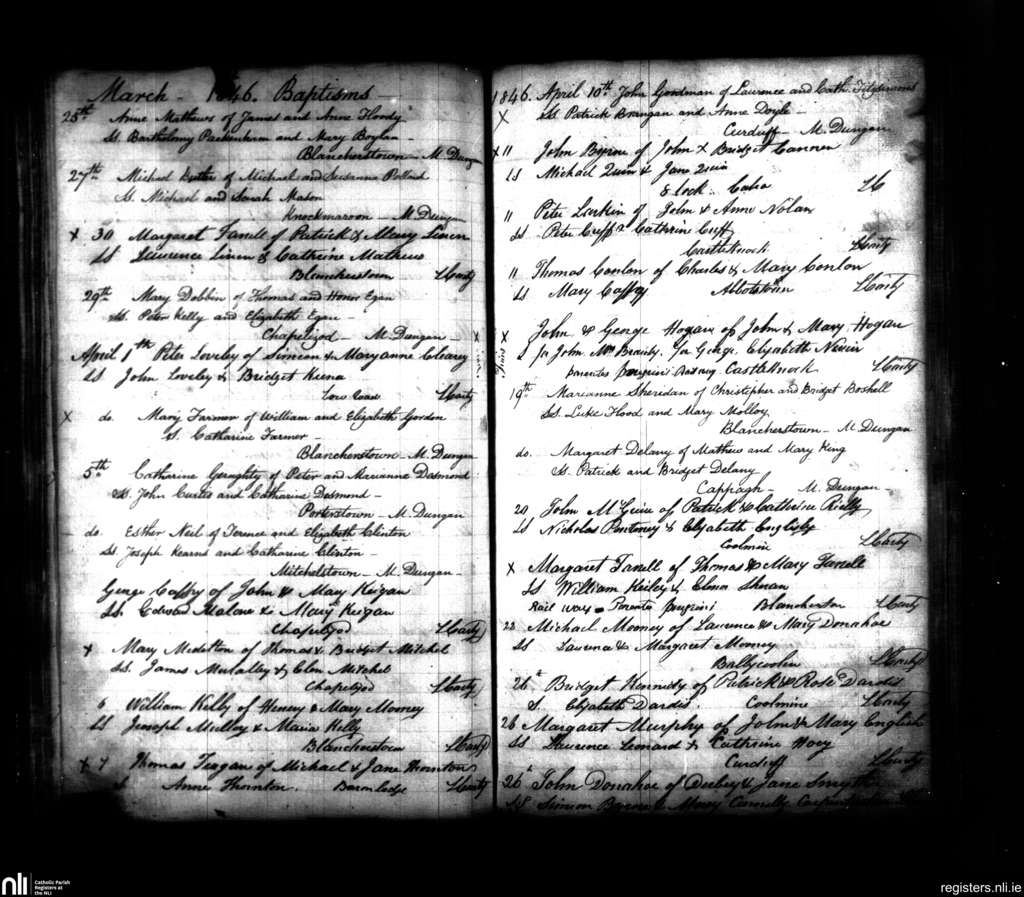 March - 1846. Baptisms -
25th Anne Mathews of James and Anne Floody
Ss. Bartholomy Packenham and Mary Boylan -
Blancherstown - M. Dungan
27th Michael of Michael and Susanna Pollard
Ss. Michael and Sarah Mason
Knockmaroon - M. Dungan
x 30 Margaret Farrell of Patrick & Mary Linen
SS Laurence Linen & Cathrine Mathews
Blancherstown
29th Mary Dobbin of Thomas and Honor Egan
Ss. Peter Kelly and Elizabeth Egan -
Chapelizod - M. Dungan -
April 1th Peter Loveley of Simeon & Maryanne Clearey
SS John Loveley & Bridget Kiena
x do. Mary Farmer of William and Elizabeth Gordon
S. Catharine Farmer -
Blancherstown - M. Dungan
5th Catharine Geraghty of Peter and Marianne Dasmond
Ss. John Curtis and Catharine Desmond -
Porterstown - M. Dungan
do. Esther Neil of Terence and Elizabeth Clinton
Ss. Joseph Kearns and Catharine Clinton -
Mitchelstown - M. Dungan -
George Caffry of John & Mary Keegan
Ss. Edward Malone & Mary Keegan
Chapelizod
x Mary Midelton of Thomas & Bridget Mitchel
SS. James Mulalley & Elen Mitchel
Chapelizod
6 William Kelly of Henery & Mary Mooney
SS Joseph Mulloy & Maria Kelly
Blancherstown
x 7 Thomas Teagan of Michael & Jane Thornton
S Anne Thornton.
1846. April 10th John Goodman of Laurence and Cath. Fitzsimons
x Ss Patrick Brangan and Anne Doyle -
Curduff - M. Dungan
x 11 John Byrne of John & Bridget Cannon
SS Michael Quin & Jane Quin
8 lock
11 Peter Larkin of John & Anne Nolan
SS Peter Cuff & Cathrine Cuff
Castleknock
11 Thomas Conlon of Charles & Mary Conlon
SS Mary Caffry Abbotstown
x John & George Hogan of John & Mary Hogan
S for John. for George. Elizabeth Nevin
Castleknock
19th Marianne Sheridan of Christopher and Bridget Boshell
Ss. Luke Flood and Mary Molloy
Blancherstown - M. Dungan
do. Margaret Delany of Mathew and Mary King
Ss. Patrick and Bridget Delany
Cappagh - M. Dungan -
20 John McGuire of Patrick & Cathrine Rielly
SS Nicholas & Elizabeth English
Coolmine
x Margaret Farrell of Thomas & Mary Farrell
SS William Keiley & Elenor
Rail way - Parentes peregrini Blancherston
22 Michael Mooney of Laurence & Mary Donahoe
SS Laurence & Margaret Mooney
Ballycoolen
26th Bridget Kennedy of Patrick & Rose Dardis
S. Elizabeth Dardis. Coolmine
26 Margaret Murphy of John & Mary English
SS Laurence Leonard & Cathrine Hoey
Curduff
26th John Donahoe of Darbey & Jane Smyth
SS Simion Byrne & Mary Connelly
nli
Catholic Parish
Registers at
the NLI
registers.nli.ie